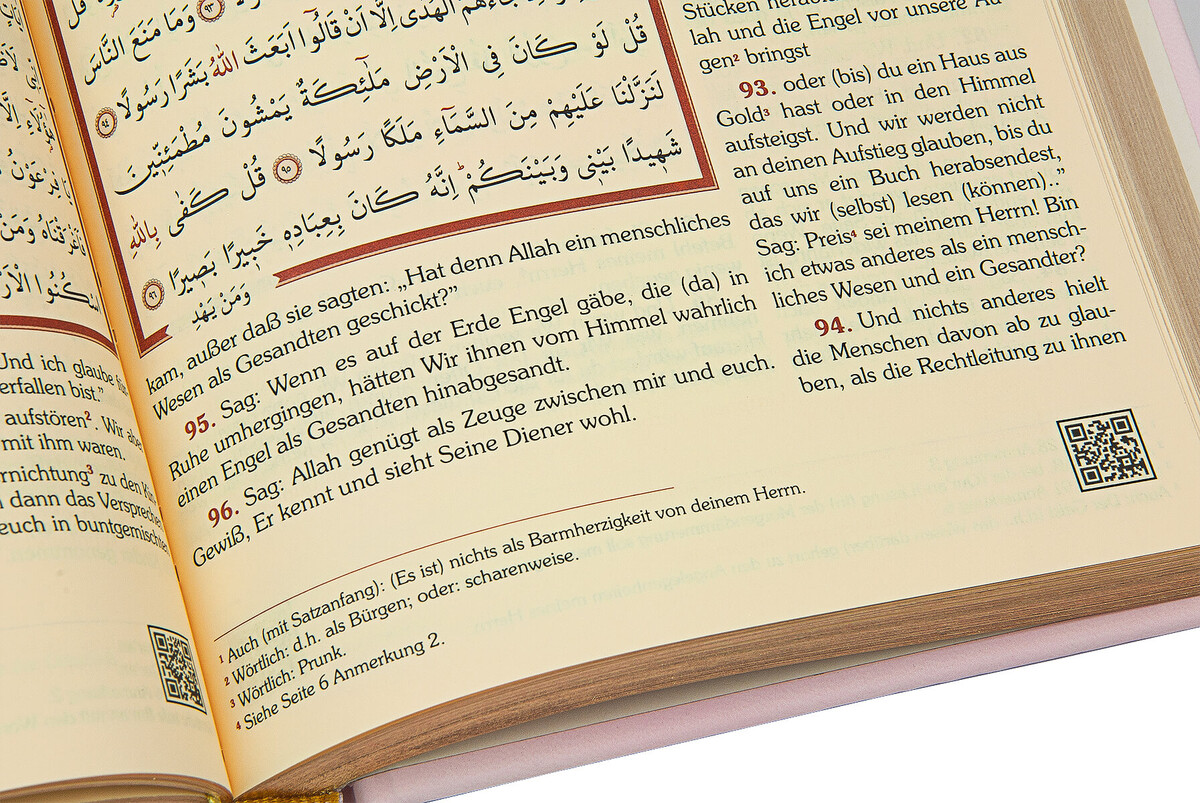 وَمَا مَنَعَ النَّاسَ
جَٓاءَهُمُ الْهُدٰٓى اِلَّٓا اَنْ قَالُٓوا اَبَعَثَ اللّٰهُ بَشَرًا رَسُولًا ﴿٩٤﴾
قُلْ لَوْ كَانَ فِي الْاَرْضِ مَلٰٓئِكَةٌ يَمْشُونَ مُطْمَئِنّ۪ينَ
لَنَزَّلْنَا عَلَيْهِمْ مِنَ السَّمَٓاءِ مَلَكًا رَسُولًا ﴿٩٥﴾ قُلْ كَفٰى بِاللّٰهِ
شَه۪يدًا بَيْن۪ي وَبَيْنَكُمْۜ اِنَّهُ كَانَ بِعِبَادِه۪ خَب۪يرًا بَص۪يرًا ﴿٩٦﴾
وَمَنْ يَهْدِ
Stücken
lah und die Engel vor unsere Au-
gen² bringst
93. oder (bis) du ein Haus aus
Gold³ hast oder in den Himmel
aufsteigst. Und wir werden nicht
an deinen Aufstieg glauben, bis du
auf uns ein Buch herabsendest,
das wir (selbst) lesen (können)..”
Sag: Preis⁴ sei meinem Herrn! Bin
ich etwas anderes als ein mensch-
liches Wesen und ein Gesandter?
94. Und nichts anderes hielt
die Menschen davon ab zu glau-
ben, als die Rechtleitung zu ihnen
kam, außer daß sie sagten: „Hat denn Allah ein menschliches
Wesen als Gesandten geschickt?”
95. Sag: Wenn es auf der Erde Engel gäbe, die (da) in
Ruhe umhergingen, hätten Wir ihnen vom Himmel wahrlich
einen Engel als Gesandten hinabgesandt.
96. Sag: Allah genügt als Zeuge zwischen mir und euch.
Gewiß, Er kennt und sieht Seine Diener wohl.
¹ Auch (mit Satzanfang): (Es ist) nichts als Barmherzigkeit von deinem Herrn.
² Wörtlich: d.h. als Bürgen; oder: scharenweise.
³ Wörtlich: Prunk.
⁴ Siehe Seite 6 Anmerkung 2.
Und ich glaube
erfallen bist.”
aufstören². Wir
mit ihm waren.
ernichtung³ zu den
dann das
euch in